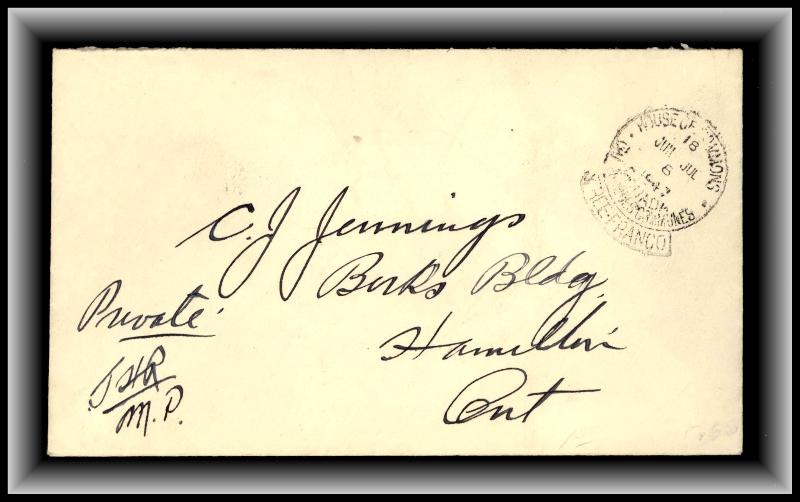 HOUSE OF COMMONS
18
JUI JUL
6
1947
CANADA
COMMUNES
FREE-FRANCO
C. J Jennings
Birks Bldg.
Hamilton
Ont
Private
M.P.